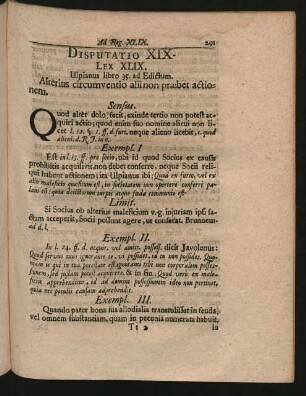 Ad Reg. XLIX. 291
DISPUTATIO XIX-
LEX XLIX.
Ulpianus libro 35. ad Edictum.
Alterius circumventio alii non præbet actio-
nem.
Sensus.
Quod alter dolo, fecit, exinde tertio non potest ac-
quiri actio; quod enim suo nomine alicui non li-
cet neque alieno licebit,
Exempl. I
Est in pro socio, ubi id quod Socius ex causis
prohibitis acquisivit, non debet conferre, neque Socii reli-
qui habent actionem; ita Ulpianus ibi: Quod ex furto, vel ex
alio maleficio quæsitum est, in societatem non oportere conferri pa-
lam est: quia delictorum turpis atque fœda communio est.
Limit.
Si Socius ob alterius maleficium v.g. injuriam ipsi fa-
ctam acceperit, Socii possunt agere, ut conferat. Brunnem.
ad d. l.
Exempl. II.
In l. 24. ff. d. acquir. vel amitt. possess. dicit Javolenus:
Quod servus tuus ignorante te possidet, id tu non possides. Quo-
niam is qui in tua potestate est, ignoranti tibi non corporalem possessio-
nem, sed justam potest acquirere, & in fin. Quod vero ex ma-
leficio apprehenditur, id ad domini possessionem ideo non pertinet,
quia nec peculii causam adprehendit.
Exempl. III.
Quando pater bona sua allodialia transtulisset in feuda,
vel omnem substantiam, quam in pecunia numerata habuit,
in